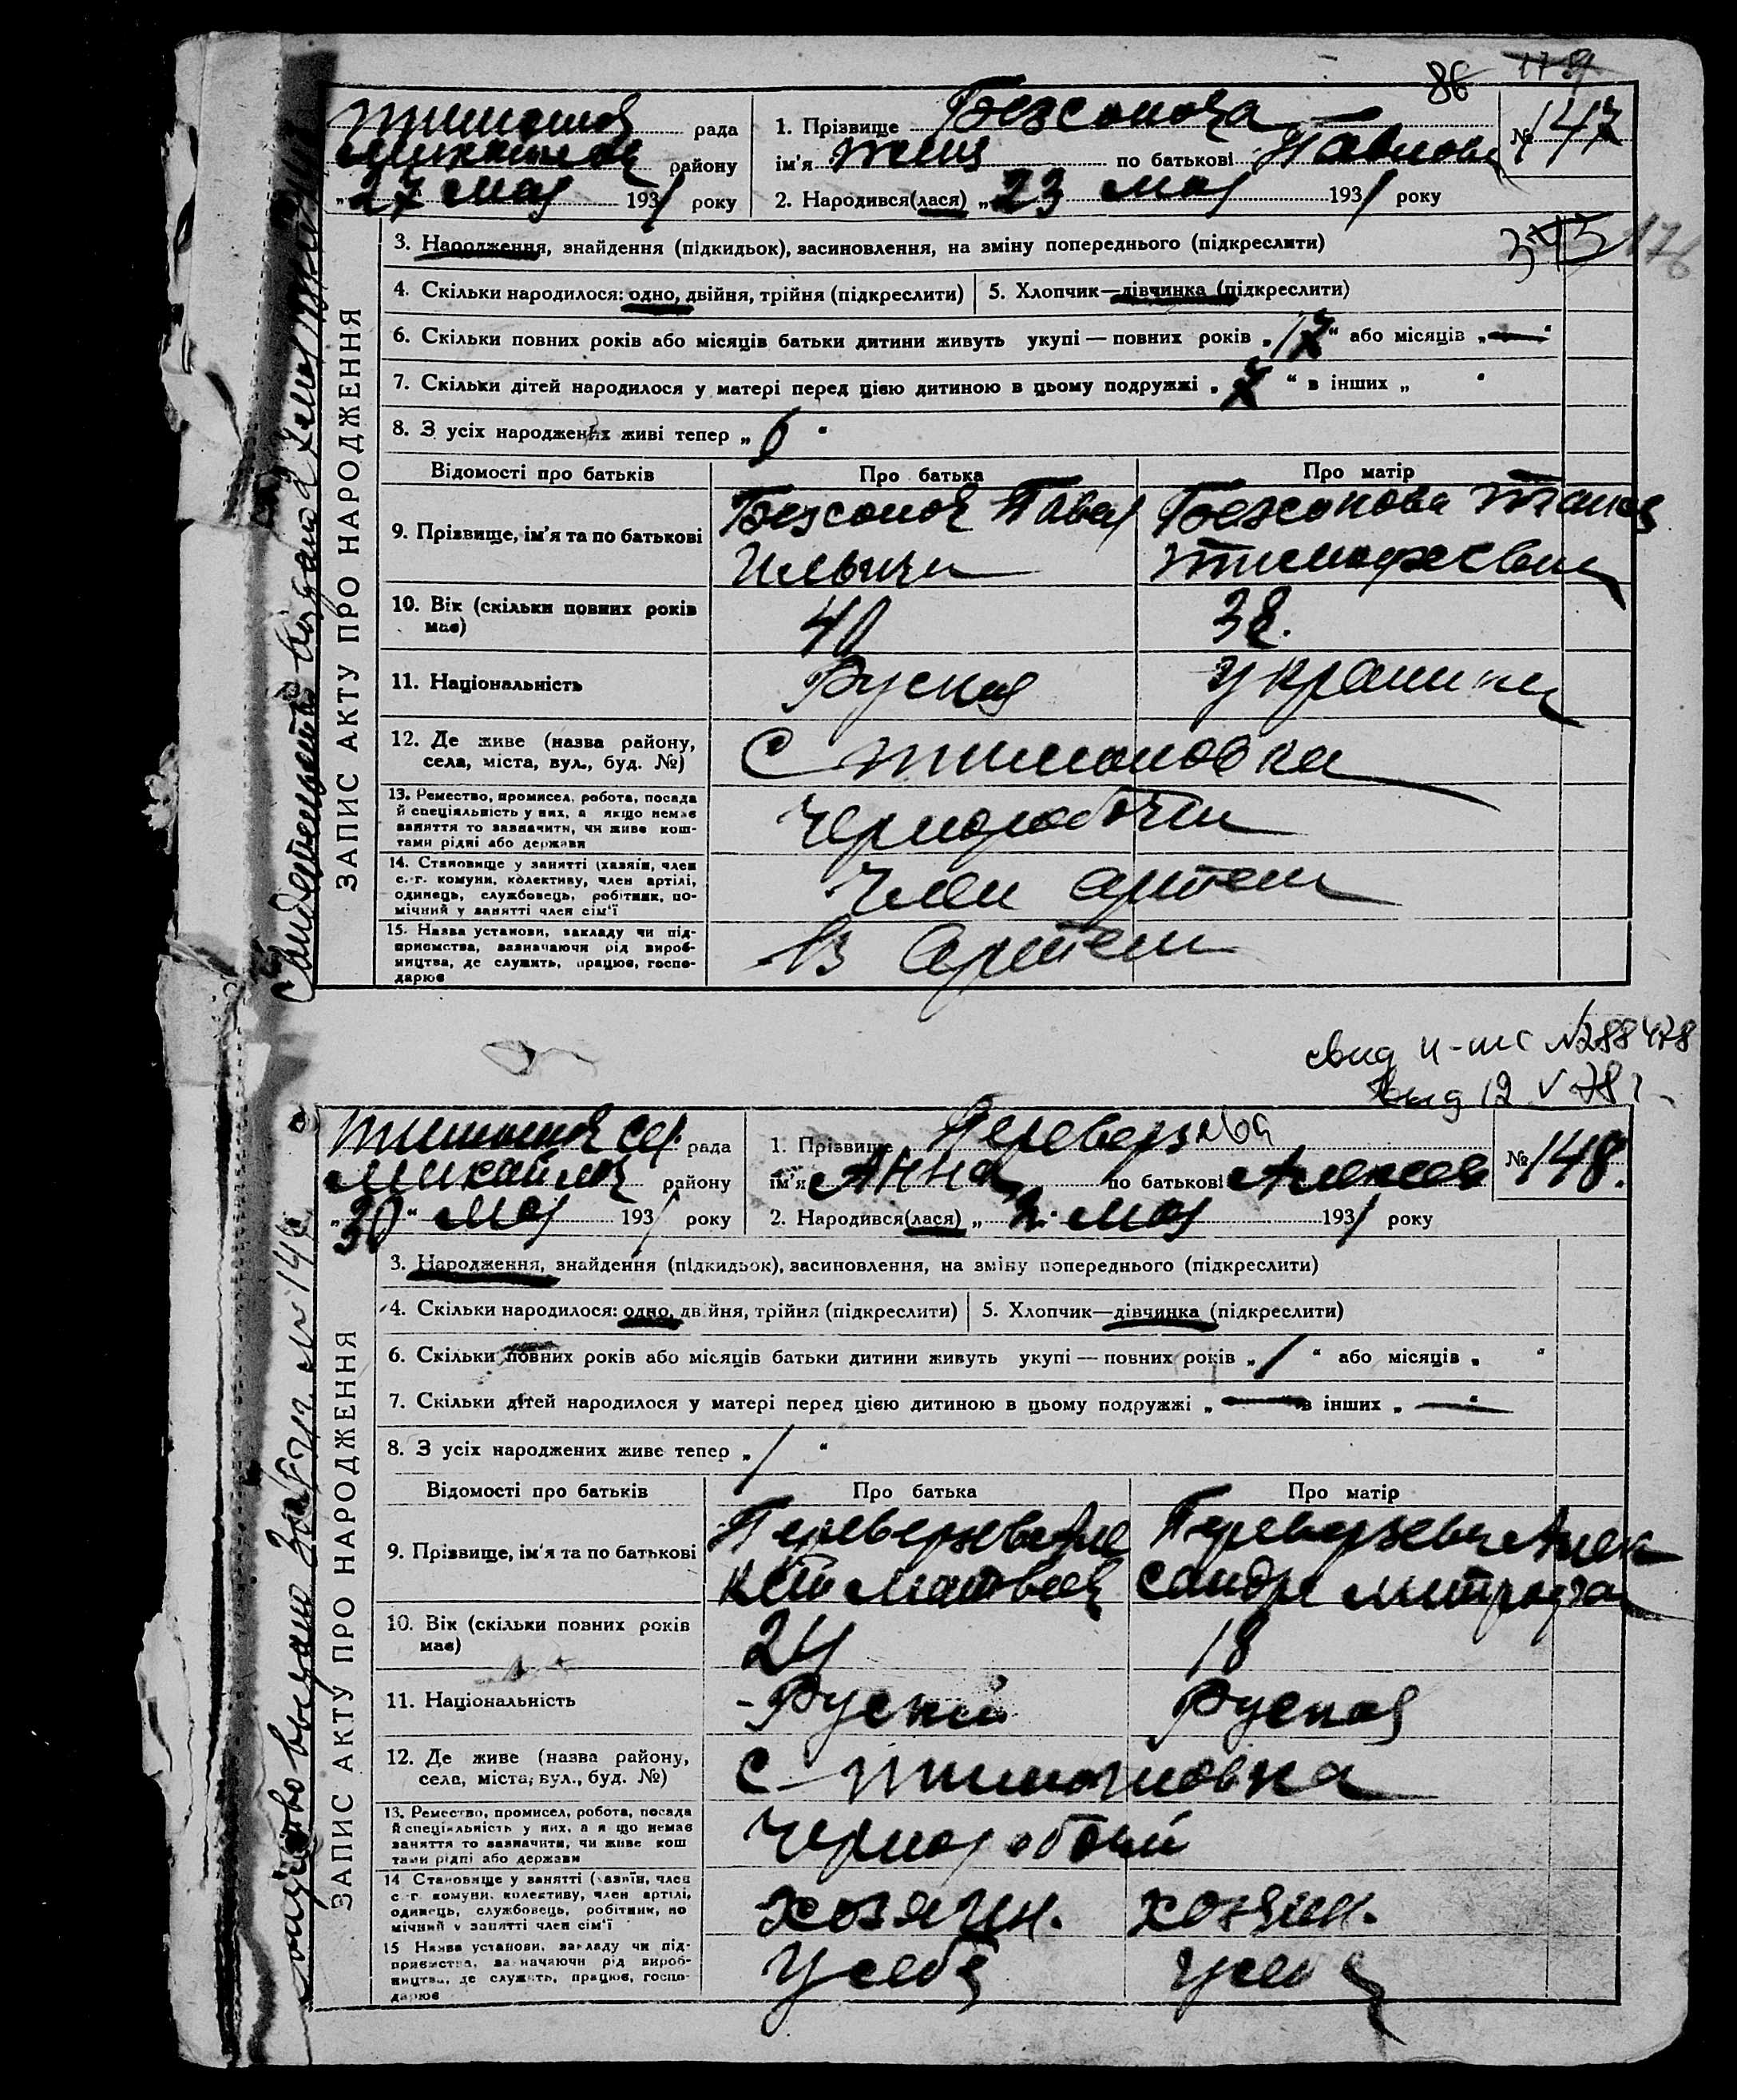 86 179
Тимонов рада
Михайлов району
„27 Мая 1931 року
1. Прізвище Безсонова
ім'я по батькові Павлова
2. Народився(лася) „23 мая 1931 року
№ 147
ЗАПИС АКТУ ПРО НАРОДЖЕННЯ
3. Народження, знайдення (підкидьок), засиновлення, на зміну попереднього (підкреслити)
176
4. Скільки народилося: одно, двійня, трійня (підкреслити)
5. Хлопчик—дівчинка (підкреслити)
6. Скільки повних років або місяців батьки дитини живуть укупі — повних років „17“ або місяців „—“
7. Скільки дітей народилося у матері перед цією дитиною в цьому подружжі „7“ в інших „ “
8. З усіх народжених живі тепер „6“
Відомості про батьків Про батька Про матір
9. Прізвище, ім'я та по батькові
Безсонов Павел
Ильичи
Безсонова Татяна
Тимофеевна
10. Вік (скільки повних років має) 40 38.
11. Національність Руская Украинка
12. Де живе (назва району, села, міста, вул., буд. №) С Тимоновка
13. Ремество, промисел, робота, посада й спеціяльність у них, а якщо немає заняття то зазначити, чи живе коштами рідні або держави Чернорабочи
14. Становище у занятті (хазяїн, член с.-г. комуни, колективу, член артілі, одинець, службовець, робітник, помічний у занятті член сім'ї Член артели
15. Назва установи, закладу чи підприємства, зазначаючи рід виробництва, де служить, працює, господарює В Артели
свид н-те № 288478
выд 12 V 78 г.
Тимонов сел. рада
Михайлов району
„30“ Мая 1931 року
1. Прізвище Переверзева
ім'я Анна по батькові Алексеев
2. Народився(лася) „2. Мая 1931 року
№ 148.
ЗАПИС АКТУ ПРО НАРОДЖЕННЯ
3. Народження, знайдення (підкидьок), засиновлення, на зміну попереднього (підкреслити)
4. Скільки народилося: одно, двійня, трійня (підкреслити)
5. Хлопчик—дівчинка (підкреслити)
6. Скільки повних років або місяців батьки дитини живуть укупі — повних років „1“ або місяців „ “
7. Скільки дітей народилося у матері перед цією дитиною в цьому подружжі „— в інших „—“
8. З усіх народжених живе тепер „1“
Відомості про батьків Про батька Про матір
9. Прізвище, ім'я та по батькові
Переверзев Але
кси Матвеев
Переверзева Алек
сандра Митрофан
10. Вік (скільки повних років має) 24 18
11. Національність Руский Руская
12. Де живе (назва району, села, міста, вул., буд. №) С Тимоновка
13. Ремество, промисел, робота, посада й спеціяльність у них, а якщо немає заняття то зазначити, чи живе коштами рідні або держави Чернорабочий
14 Становище у занятті (хазяїн, член с.-г. комуни, колективу, член артілі, одинець, службовець, робітник, помічний у занятті член сім'ї хозяин. хозяин.
15 Назва установи, закладу чи підприємства, зазначаючи рід виробництва, де служить, працює, господарює У себя У себя